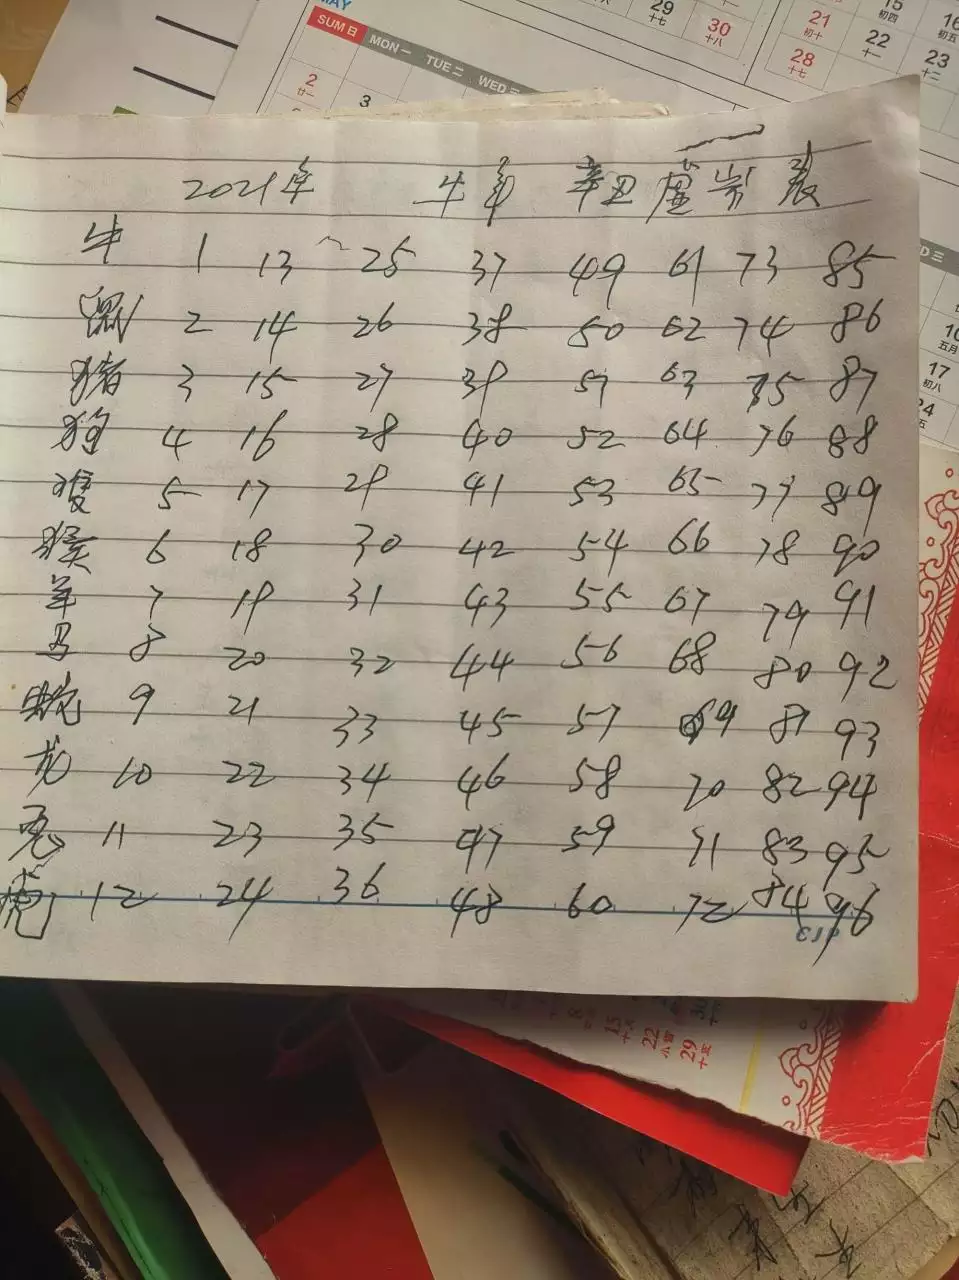 MAY
SUM 日 MON 一 TUE 二 WED 三
2 3
廿一
29
十七
30
十八
15 16
初四 初五
21 22 23
初十 十一 十二
28
十七
2021年 牛年 辛丑虚岁表
牛 1 13 25 37 49 61 73 85
鼠 2 14 26 38 50 62 74 86
猪 3 15 27 39 51 63 75 87
狗 4 16 28 40 52 64 76 88
5 17 29 41 53 65 77 89
猴 6 18 30 42 54 66 78 90
羊 7 19 31 43 55 67 79 91
马 8 20 32 44 56 68 80 92
蛇 9 21 33 45 57 69 81 93
龙 10 22 34 46 58 70 82 94
兔 11 23 35 47 59 71 83 95
虎 12 24 36 48 60 72 84 96
17
初八
15 22 29